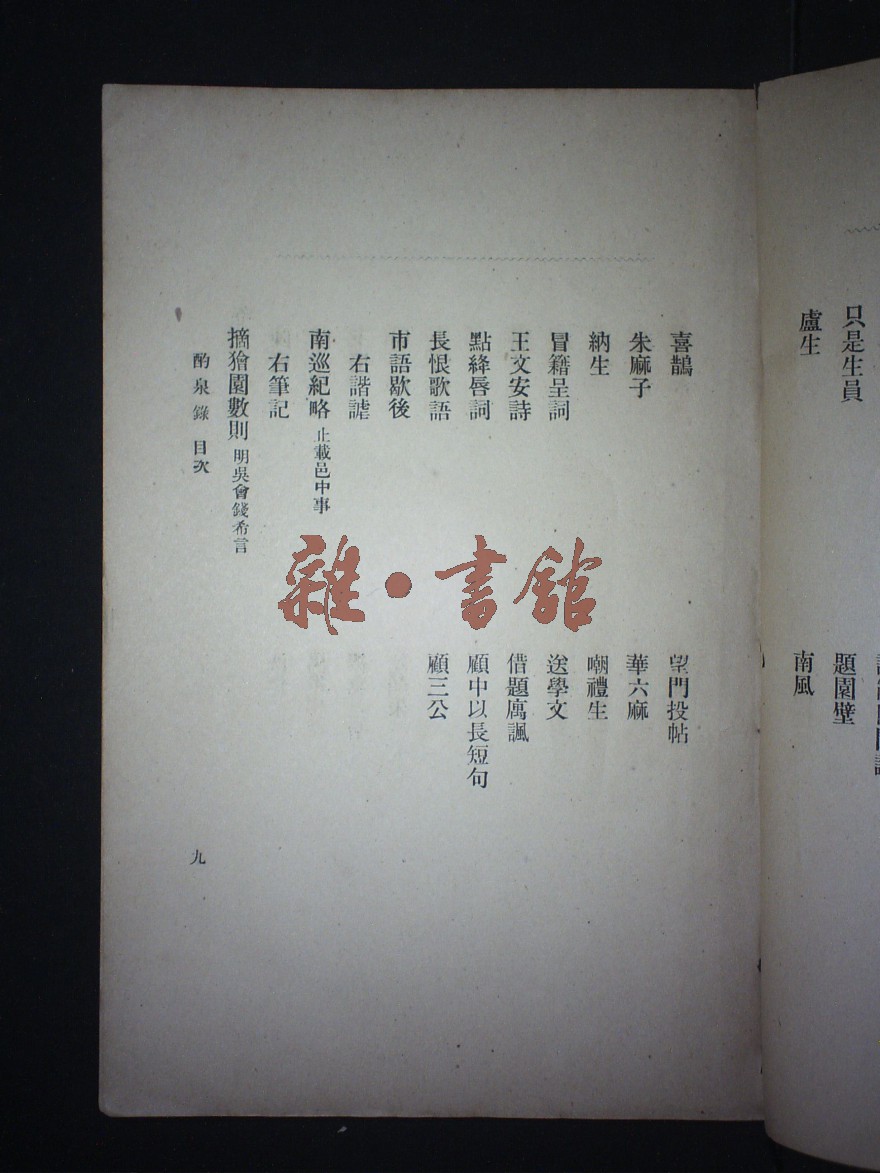 只是生員
題園壁
盧生
南風
喜鵲
望門投帖
朱麻子
華六麻
納生
嘲禮生
冒籍呈詞
送學文
王文安詩
借題寓諷
點絳唇詞
顧中以長短句
長恨歌語
顧三公
市語歇後
右諧謔
南巡紀略 止載邑中事
右筆記
摘獪園數則 明吳會錢希言
酌泉錄 目次
九
雜·書館